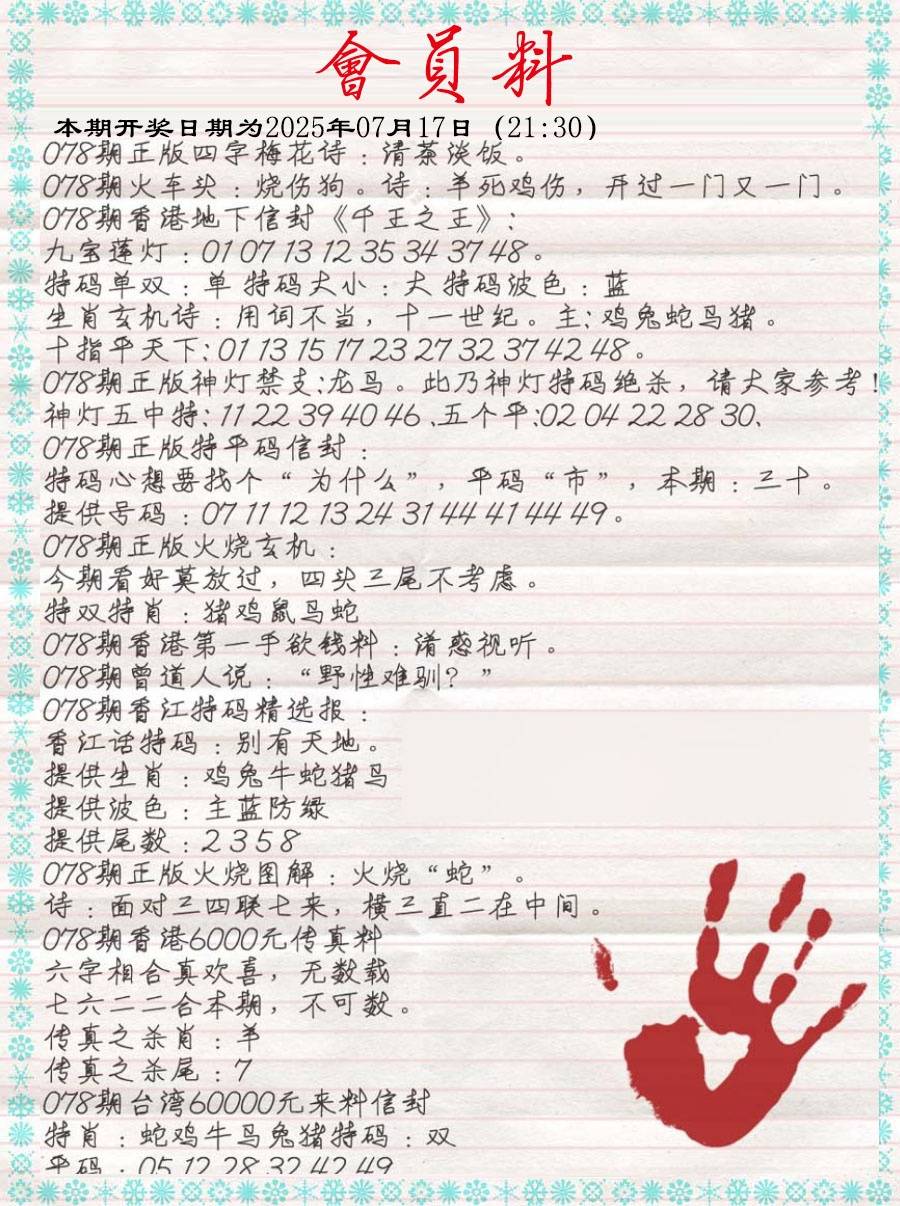 會員料
本期开奖日期为2025年07月17日 (21:30)
078期正版四字梅花诗：清茶淡饭。
078期火车头：烧伤狗。诗：羊死鸡伤，开过一门又一门。
078期香港地下信封《千王之王》：
九宝莲灯：01 07 13 12 35 34 37 48。
特码单双：单 特码大小：大 特码波色：蓝
生肖玄机诗：用词不当，十一世纪。主：鸡兔蛇马猪。
十指平天下：01 13 15 17 23 27 32 37 42 48。
078期正版神灯禁支：龙马。此乃神灯特码绝杀，请大家参考！
神灯五中特：11 22 39 40 46、五个平：02 04 22 28 30、
078期正版特平码信封：
特码心想要找个“为什么”，平码“市”，本期：三十。
提供号码：07 11 12 13 24 31 44 41 44 49。
078期正版火烧玄机：
今期看好莫放过，四头三尾不考虑。
特双特肖：猪鸡鼠马蛇
078期香港第一手欲钱料：淆惑视听。
078期曾道人说：“野性难驯？”
078期香江特码精选报：
香江话特码：别有天地。
提供生肖：鸡兔牛蛇猪马
提供波色：主蓝防绿
提供尾数：2 3 5 8
078期正版火烧图解：火烧“蛇”。
诗：面对三四联七来，横三直二在中间。
078期香港6000元传真料
六字相合真欢喜，无数载
七六二二合本期，不可数。
传真之杀肖：羊
传真之杀尾：7
078期台湾60000元来料信封
特肖：蛇鸡牛马兔猪特码：双
平码：05 12 28 32 42 49